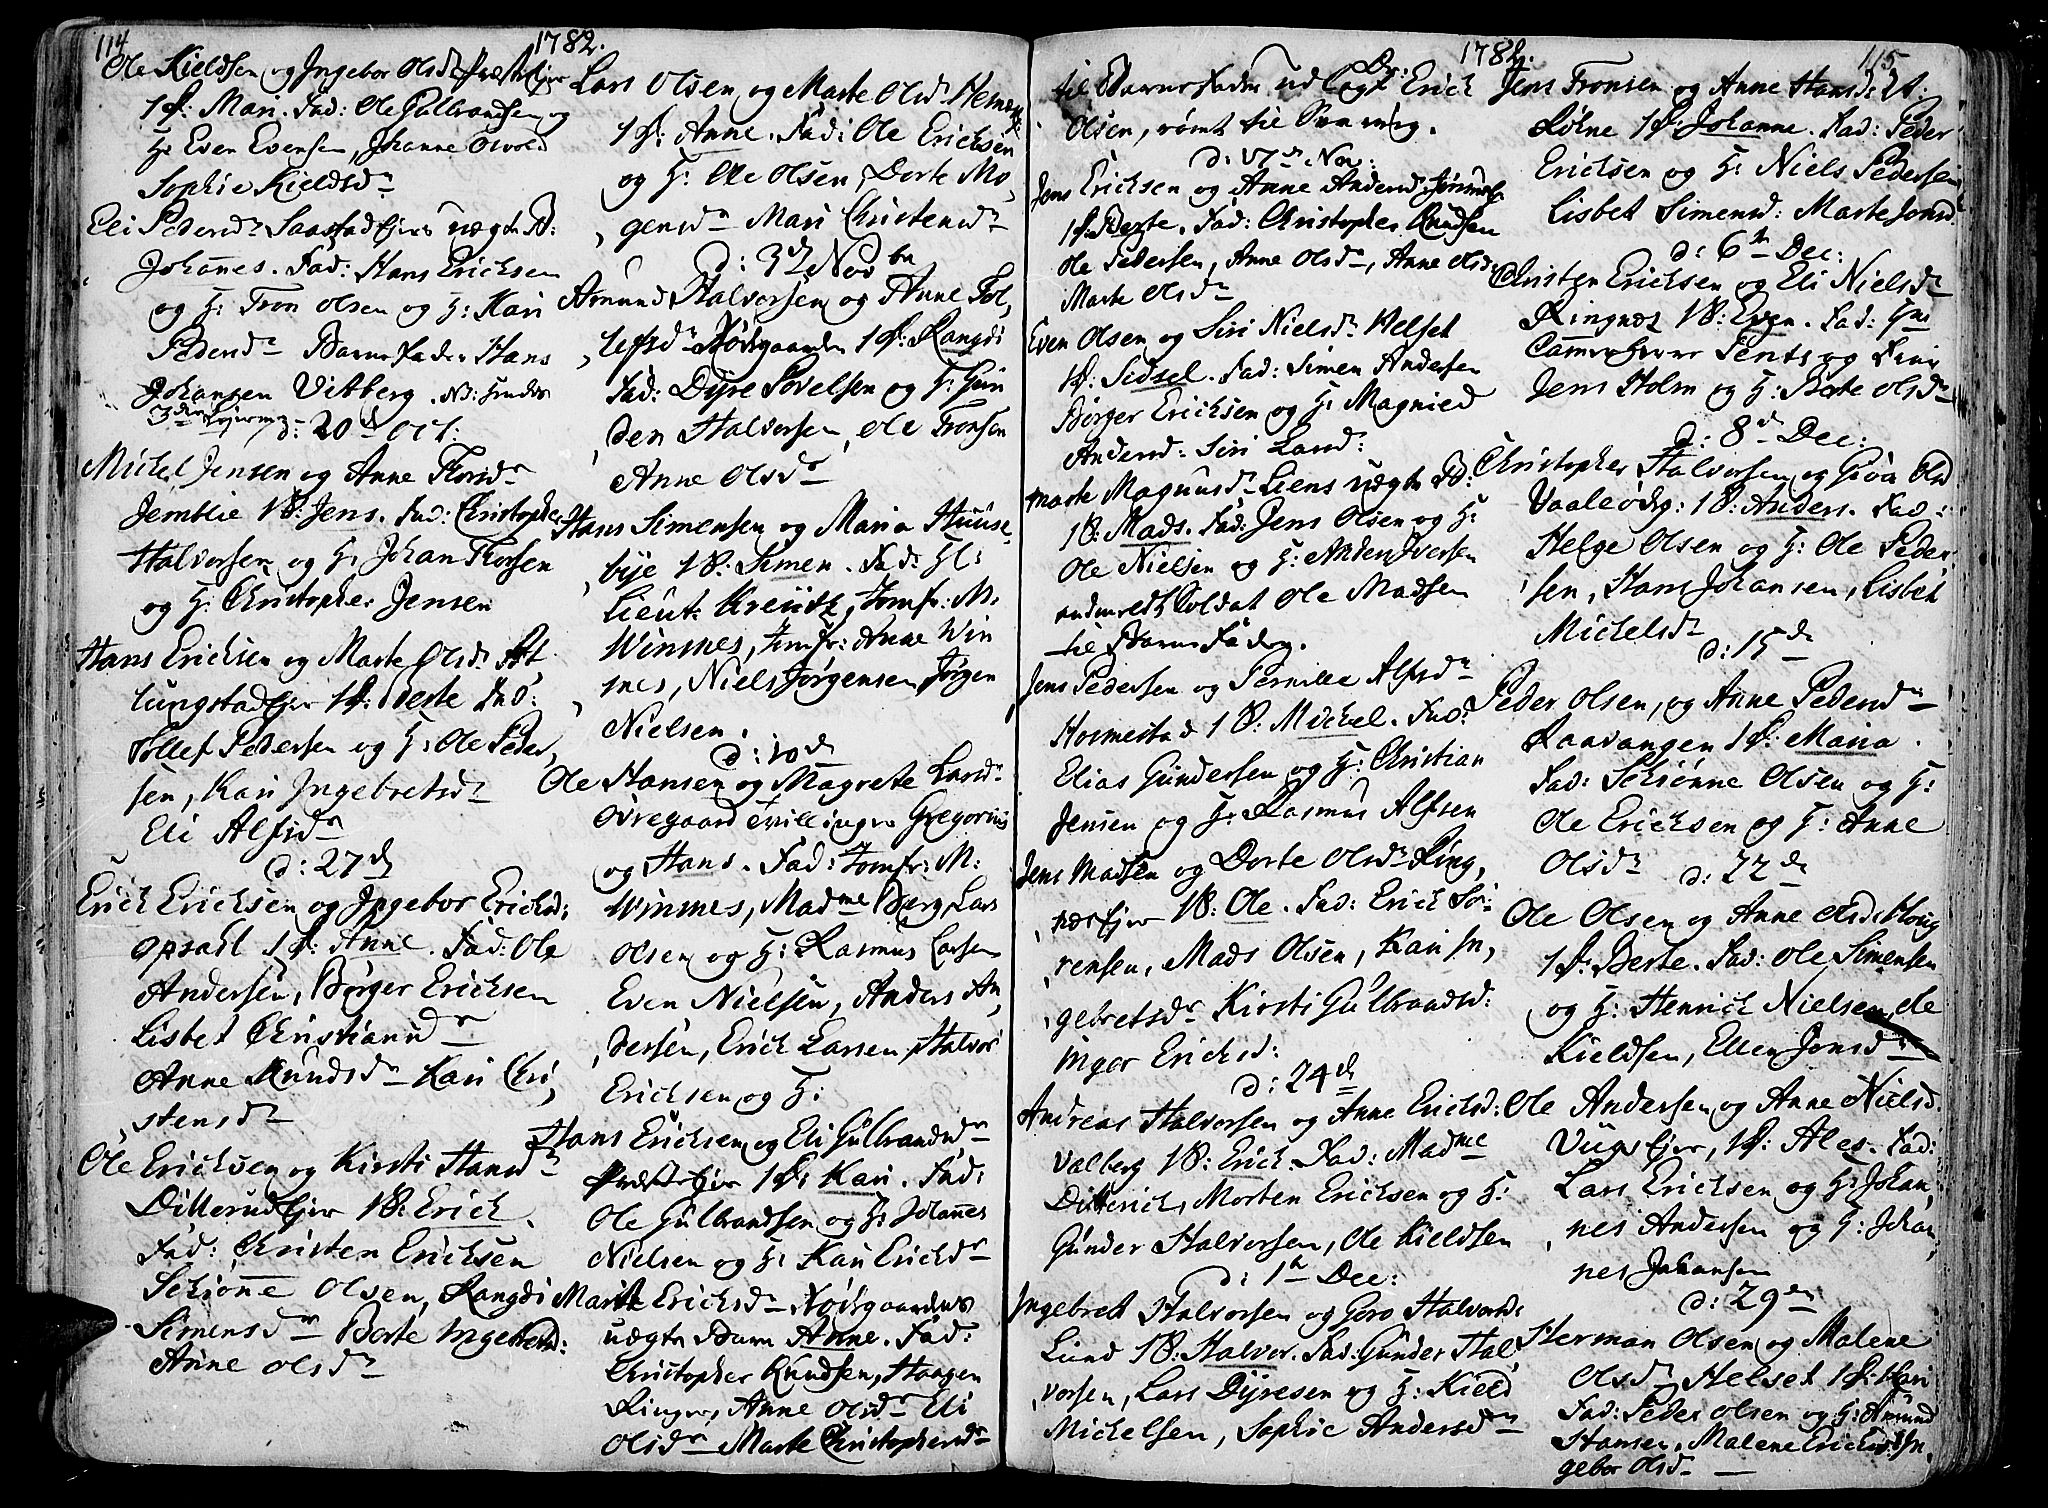 114
1782.
Ole Kieldsen og Ingebor Olsdr Præsteejer
1 P: Mari. Fad: Ole Gulbrandsen og
H: Even Evensen, Johanne
Sophie Kieldsdr
Eli Pedersdr Saastadejer uægte B:
Johannes. Fad: Hans Ericksen
og H: Tron Olsen og H: Kari
Pedersdr Barnefader Hans
Johansen Vitberg. NB: hendes
3die
d: 20d Oct:
Michel Jensen og Anne Thorsdr
Jemblie 1 B: Jens. Fad: Christopher
Halvorsen og H: Johan Thorsen
og H: Christopher Jensen
Hans Ericksen og Marte Olsdr At
lungstadejer 1 P: Berte Fad:
Tollef Pedersen og H: Ole Peder,
sen, Kari Ingebretsdr
Eli Alfsdr
d: 27d
Erich Ericksen og Ingebor Ericksd:
opsahl 1 P: Anne. Fad: Ole
Andersen, Børger Ericksen
Lisbet Christiansdr
Anne Knudsdr Kari Chri,
stensdr
Ole Ericksen og Kirsti Hansdr
Dillerudejer 1 B: Erich.
Fad: Christen Ericksen
Schiønne Olsen, Rangdi
Simensdr Berte Ingebretsd:
Anne Olsdr
Lars Olsen og Marte Olsdr
1 P: Anne. Fad: Ole Ericksen
og H: Ole Olsen, Dorte Mo,
gensdr Mari Christensdr
d: 3d Novbr
Amund Halvorsen og Anne Tol,
lefsdr Nordgaarden 1 P: Rangdi
Fad: Dyre Povelsen og H: Gun
der Halvorsen, Ole Tronsen
Anne Olsdr
Hans Simensen og Maria Huuse
bye 1 B: Simen. Fad: Hr:
Lieut: Kreutz, Jomfr: M:
Winsnes, Jomfr: Anne Win
snes, Niels Jørgensen, Jørgen
Nielsen.
d: 10d
Ole Hansen og Magrete Larsdr
Ovregaard Tvillinger Gregorius
og Hans. Fad: Jomfr: M:
Winsnes, Madme Berg, Lars
Olsen og H: Rasmus Larsen
Even Nielsen, Anders An,
dersen, Erich Larsen, Halvor
Ericksen og H:
Hans Ericksen og Eli Gulbrandsdr
Præsteejer 1 P: Kari. Fad:
Ole Gulbrandsen og H: Johannes
Nielsen og H: Kari Ericksdr
Marit Ericksdr Nordgaardens
uægte Barn Anne. Fad:
Christopher Knudsen, Haagen
Ringer, Anne Olsdr Eli
Olsdr Marte Christophersdr
1782.
115
til Barnefader udlagt Erich
Olsen, rømt til Sverrig.
d: 17de Nov:
Jens Ericksen og Anne Andersd:
1 P: Berte. Fad: Christopher Knudsen
Ole Pedersen, Anne Olsdr, Anne Olsdr
Marte Olsdr
Even Olsen og Siri Nielsdr Helset
1 P: Sidsel. Fad: Simen Andersen
Børger Ericksen og H: Magnild
Andersd: Siri Larsd:
Marte Magnusdr Liens uægte B:
1 B: Mads. Fad: Jens Olsen og H:
Ole Nielsen og H: Anders Iversen
Soldat Ole Madsen
til Barnefader.
Jens Pedersen og Pernille Alfsdr
Hormestad 1 B: Michel. Fad:
Elias Gundersen og H: Christian
Jensen og H: Rasmus Alfsen
Jens Madsen og Dorte Olsdr Ring,
næsejer 1 B: Ole. Fad: Erich Sø,
rensen, Mads Olsen, Kari In,
gebretsdr Kirsti Gulbrandsd:
Inger Ericksd:
d: 24d
Andreas Halvorsen og Anne Ericksd:
Valberg 1 B: Erich. Fad: Madme
Ditterich, Morten Ericksen og H:
Gunder Halvorsen, Ole Kieldsen
d: 1te Dec:
Ingebret Halvorsen og Goro Halvorsd:
Lund 1 B: Halvor. Fad: Gunder Hal,
vorsen, Lars Dyresen og H: Kield
Michelsen, Sophie Andersdr
Jens Tronsen og Anne Hansd:
Løkne 1 P: Johanne. Fad: Peder
Ericksen og H: Niels Pedersen
Lisbet Simensd: Marte Jonsd:
d: 6te Dec:
Christen Ericksen og Eli Nielsdr
Ringnæs 1 B: Even. Fad: Hrr
Cammerherre Pents og Frue
Jens Holm og H: Berte Olsdr
d: 8de Dec:
Christopher Halvorsen og Goro Olsd
Vaaleødeg: 1 B: Anders. Fad:
Helge Olsen og H: Ole Peder
sen, Hans Johansen, Lisbet
Michelsdr
d: 15de
Peder Olsen, og Anne Pedersdr
Raavangen 1 P: Maria.
Fad: Schiønne Olsen og H:
Ole Ericksen og H: Anne
Olsdr
d: 22de
Ole Olsen og Anne Olsd: Houg
1 P: Berte. Fad: Ole Simensen
og H: Henrich Nielsen, Ole
Kieldsen, Ellen Jonsdr
Ole Andersen og Anne Nielsd.
1 P: Ales. Fad:
Lars Ericksen og H: Johan,
nes Andersen og H: Johan,
nes Johansen
d: 29en
Herman Olsen og Malene
Olsdr Helset 1 P: Kari
Fad: Peder Olsen og H: Amund
Hansen, Malene Ericksd: In,
gebor Olsdr